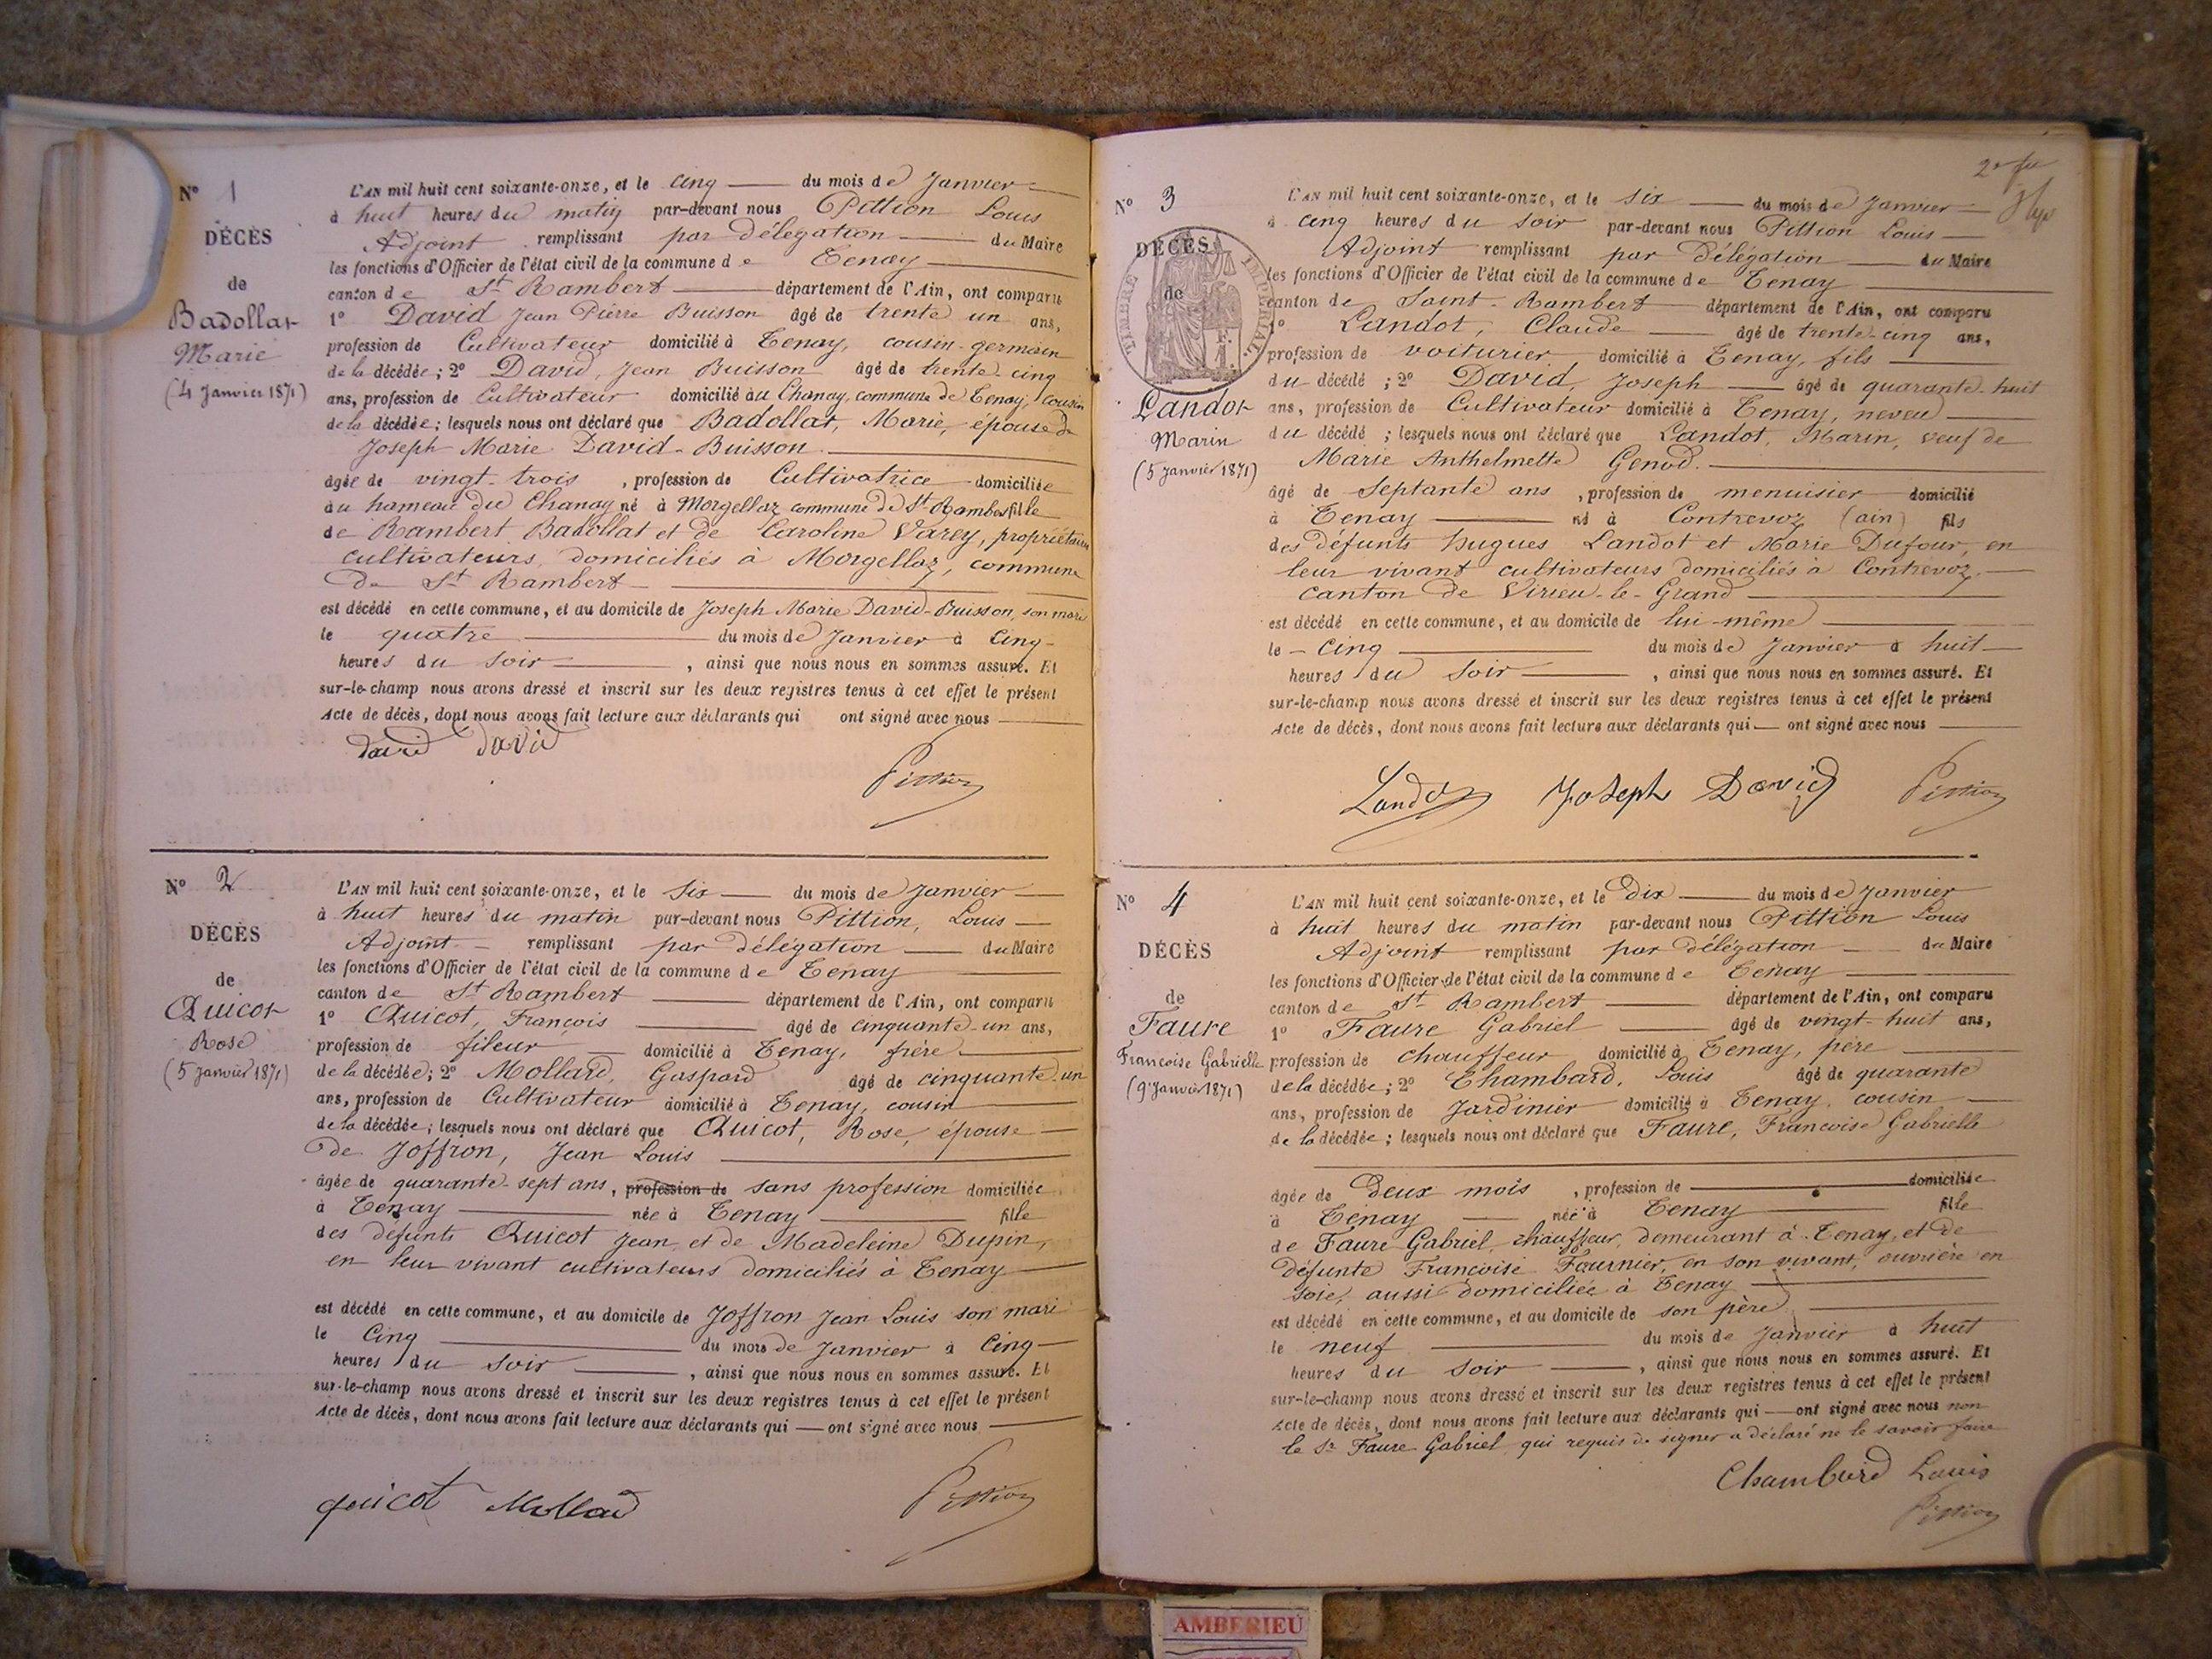 N° 1
DÉCÈS
de
Badollat
Marie
(4 Janvier 1871)
L'AN mil huit cent soixante-onze, et le cinq du mois de Janvier
à huit heures du matin par-devant nous Pittion Louis
Adjoint remplissant par délégation du Maire
les fonctions d'Officier de l'état civil de la commune de Tenay
canton de St Rambert département de l'Ain, ont comparu
1° David Jean Pierre Buisson âgé de trente un ans,
profession de Cultivateur domicilié à Tenay, cousin-germain
de la décédée; 2° David, Jean Buisson âgé de trente-cinq
ans, profession de Cultivateur domicilié au Chanay, commune de Tenay, cousin
de la décédée; lesquels nous ont déclaré que Badollat, Marie, épouse de
Joseph Marie David-Buisson
âgée de vingt-trois, profession de Cultivatrice domiciliée
au hameau du Chanay né à Morgellaz commune de St Rambert fille
de Rambert Badollat et de Caroline Varey, propriétaires
cultivateurs, domiciliés à Morgellaz, commune
de St Rambert
est décédé en cette commune, et au domicile de Joseph Marie David-Buisson, son mari
le quatre du mois de Janvier à cinq
heures du soir, ainsi que nous nous en sommes assuré. Et
sur-le-champ nous avons dressé et inscrit sur les deux registres tenus à cet effet le présent
Acte de décès, dont nous avons fait lecture aux déclarants qui ont signé avec nous
david David
Pittion
N° 2
DÉCÈS
de
Quicot
Rose
(5 Janvier 1871)
L'AN mil huit cent soixante-onze, et le six du mois de Janvier
à huit heures du matin par-devant nous Pittion, Louis
Adjoint remplissant par délégation du Maire
les fonctions d'Officier de l'état civil de la commune de Tenay
canton de St Rambert département de l'Ain, ont comparu
1° Quicot, François âgé de cinquante-un ans,
profession de fileur domicilié à Tenay, frère
de la décédée; 2° Mollard, Gaspard âgé de cinquante-un
ans, profession de Cultivateur domicilié à Tenay, cousin
de la décédée; lesquels nous ont déclaré que Quicot, Rose, épouse
de Joffron, Jean Louis
âgée de quarante-sept ans, profession de sans profession domiciliée
à Tenay née à Tenay fille
des défunts Quicot Jean, et de Madeleine Dupin,
en leur vivant cultivateurs domiciliés à Tenay
est décédé en cette commune, et au domicile de Joffron Jean Louis son mari
le Cinq du mois de Janvier à Cinq
heures du soir, ainsi que nous nous en sommes assuré. Et
sur-le-champ nous avons dressé et inscrit sur les deux registres tenus à cet effet le présent
Acte de décès, dont nous avons fait lecture aux déclarants qui ont signé avec nous
quicot Mollard
Pittion
N° 3
DÉCÈS
de
TIMBRE IMPERIAL
Landot
Marin
(5 Janvier 1871)
L'AN mil huit cent soixante-onze, et le six du mois de Janvier
à cinq heures du soir par-devant nous Pittion Louis
Adjoint remplissant par délégation du Maire
les fonctions d'Officier de l'état civil de la commune de Tenay
canton de Saint-Rambert département de l'Ain, ont comparu
1° Landot, Claude âgé de trente-cinq ans,
profession de voiturier domicilié à Tenay, fils
du décédé; 2° David, Joseph âgé de quarante-huit
ans, profession de Cultivateur domicilié à Tenay, neveu
du décédé; lesquels nous ont déclaré que Landot, Marin, veuf de
Marie Anthelmette Genod.
âgé de Septante ans, profession de menuisier domicilié
à Tenay né à Contrevoz (ain) fils
des défunts Hugues Landot et Marie Dufour, en
leur vivant cultivateurs domiciliés à Contrevoz
canton de Virieu-le-Grand
est décédé en cette commune, et au domicile de lui-même
le Cinq du mois de Janvier à huit
heures du soir, ainsi que nous nous en sommes assuré. Et
sur-le-champ nous avons dressé et inscrit sur les deux registres tenus à cet effet le présent
Acte de décès, dont nous avons fait lecture aux déclarants qui ont signé avec nous
Landot Joseph David Pittion
N° 4
DÉCÈS
de
Faure
Francoise Gabrielle
(9 Janvier 1871)
L'AN mil huit cent soixante-onze, et le Dix du mois de Janvier
à huit heures du matin par-devant nous Pittion Louis
Adjoint remplissant par délégation du Maire
les fonctions d'Officier de l'état civil de la commune de Tenay
canton de St Rambert département de l'Ain, ont comparu
1° Faure Gabriel âgé de vingt-huit ans,
profession de chauffeur domicilié à Tenay, père
de la décédée; 2° Chambard, Louis âgé de quarante
ans, profession de Jardinier domicilié à Tenay, cousin
de la décédée; lesquels nous ont déclaré que Faure, Francoise Gabrielle
âgée de Deux mois, profession de domiciliée
à Tenay née à Tenay fille
de Faure Gabriel, chauffeur, demeurant à Tenay, et de
défunte Francoise Fournier, en son vivant, ouvrière en
soie, aussi domiciliée à Tenay
est décédé en cette commune, et au domicile de son père
le neuf du mois de Janvier à huit
heures du soir, ainsi que nous nous en sommes assuré. Et
sur-le-champ nous avons dressé et inscrit sur les deux registres tenus à cet effet le présent
Acte de décès, dont nous avons fait lecture aux déclarants qui ont signé avec nous non
le Sr Faure Gabriel qui requis de signer a déclaré ne le savoir faire
Chambard Louis
Pittion
AMBERIEU